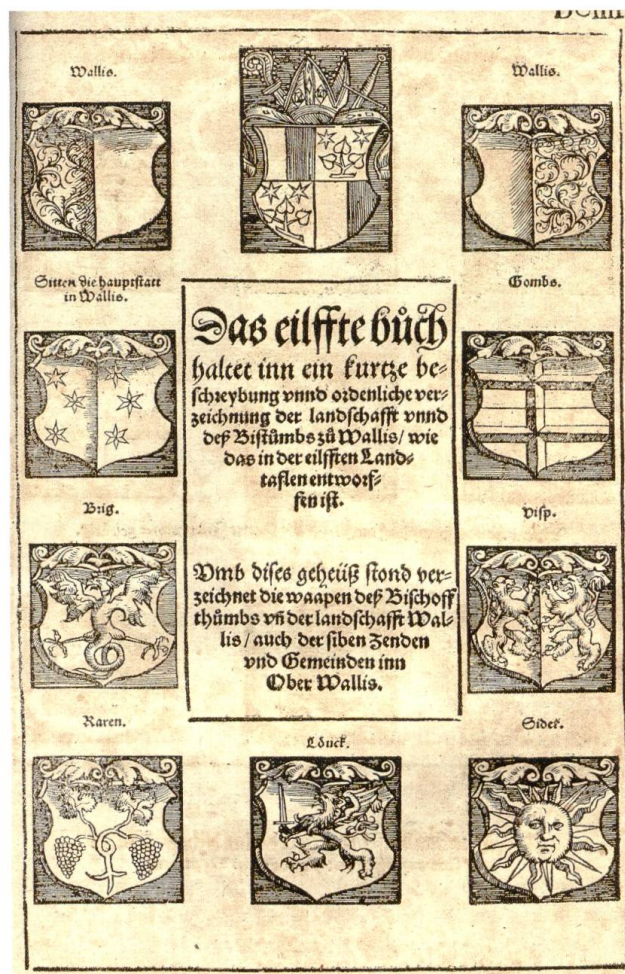 Wallis.
Wallis.
Sitten die hauptstatt
in Wallis.
Gombs.
Das eilffte bůch
haltet inn ein kurtze be-
schreybung vnnd ordenliche ver-
zeichnung der landschafft vnnd
deß Bistůmbs zů Wallis/ wie
das in der eilfften Land-
taflen entworf-
fen ist.
Brig.
Visp.
Vmb dises geheüß stond ver-
zeichnet die waapen deß Bischoff
thůmbs vñ der landschafft Wal-
lis/ auch der siben Zenden
vnd Gemeinden inn
Ober Wallis.
Raren.
Löuck.
Sider.